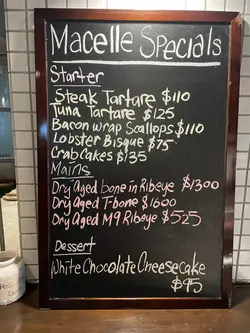 Macelle Specials
Starter
Steak Tartare $110
Tuna Tartare $125
Bacon wrap Scallops $110
Lobster Bisque $75
Crab Cakes $135
Mains
Dry Aged bone in Ribeye $1300
Dry Aged T-bone $1600
Dry Aged M9 Ribeye $525
Dessert
White Chocolate Cheesecake
$95